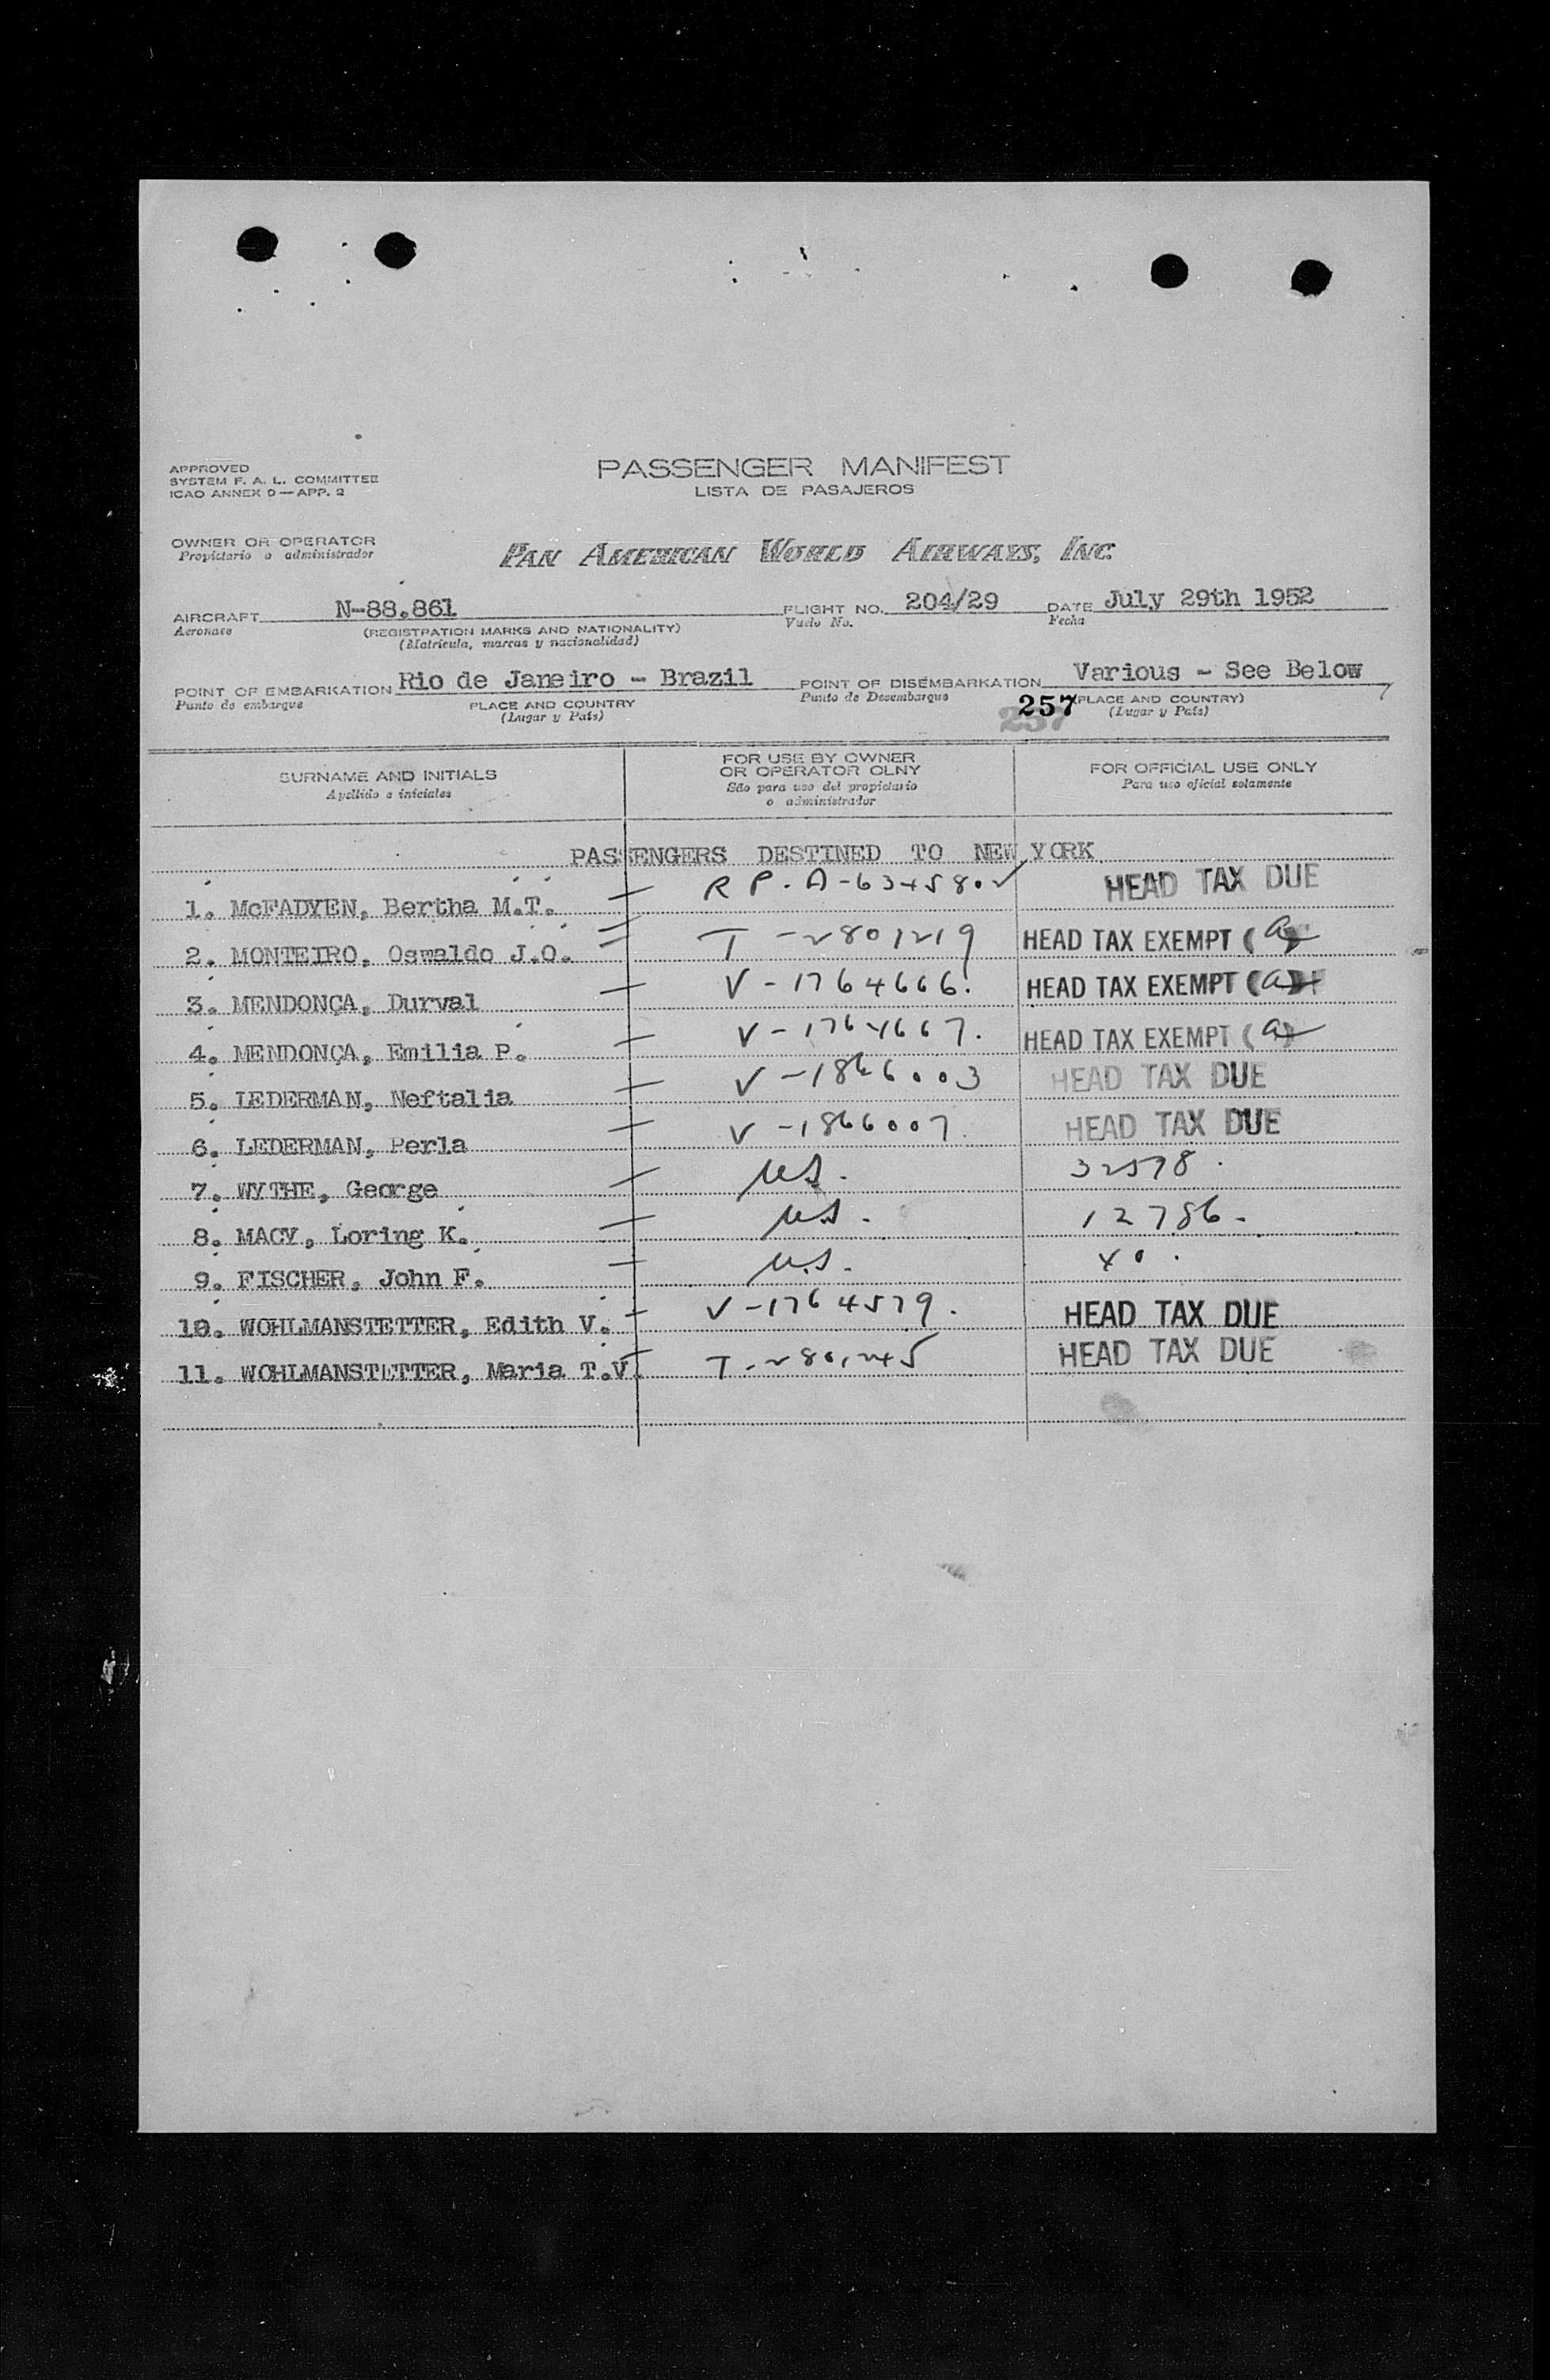 APPROVED
SYSTEM F. A. L. COMMITTEE
ICAO ANNEX 9—APP. 2
PASSENGER MANIFEST
LISTA DE PASAJEROS
OWNER OR OPERATOR
Propietario o administrador
PAN AMERICAN WORLD AIRWAYS, INC
AIRCRAFT N-88.861 FLIGHT NO. 204/29 DATE July 29th 1952
Aeronave (REGISTRATION MARKS AND NATIONALITY) Vuelo No. Fecha
(Matrícula, marcas y nacionalidad)
POINT OF EMBARKATION Rio de Janeiro - Brazil POINT OF DISEMBARKATION Various - See Below
Punto de embarque PLACE AND COUNTRY Punto de Desembarque 257 (PLACE AND COUNTRY)
(Lugar y País) (Lugar y País)
SURNAME AND INITIALS
Apellido e iniciales
FOR USE BY OWNER
OR OPERATOR OLNY
Són para uso del propietario
o administrador
FOR OFFICIAL USE ONLY
Para uso oficial solamente
PASSENGERS DESTINED TO NEW YORK
1. McFADYEN, Bertha M.T. R P. A-634580 ✓ HEAD TAX DUE
2. MONTEIRO, Oswaldo J.O. T-2801219 HEAD TAX EXEMPT (a)
3. MENDONÇA, Durval V-1764666. HEAD TAX EXEMPT (a)
4. MENDONÇA, Emilia P. V-1764667. HEAD TAX EXEMPT (a)
5. LEDERMAN, Neftalia V-1866003 HEAD TAX DUE
6. LEDERMAN, Perla V-1866007. HEAD TAX DUE
7. WYTHE, George U.S. 32578.
8. MACY, Loring K. U.S. 12786.
9. FISCHER, John F. U.S. 40.
10. WOHLMANSTETTER, Edith V. V-1764579. HEAD TAX DUE
11. WOHLMANSTETTER, Maria T.V. T-2801245 HEAD TAX DUE